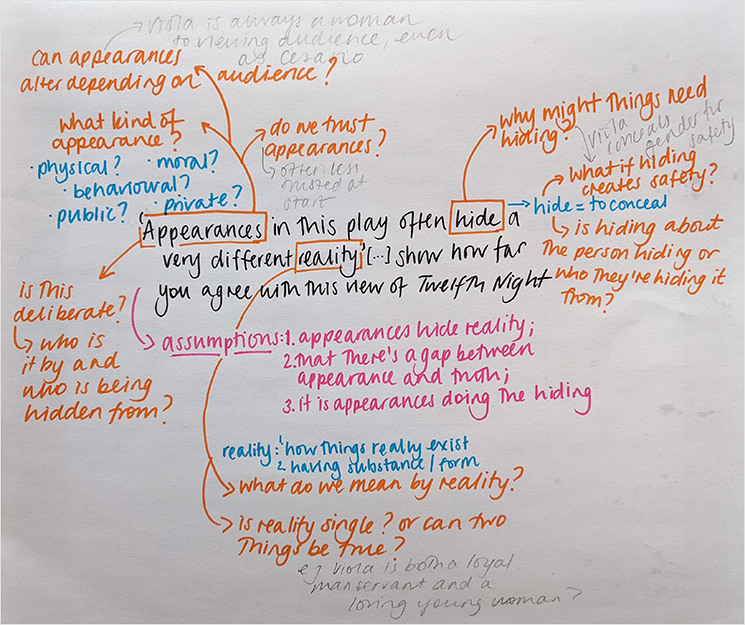 viola is always a woman
to viewing audience, even
as cesario
can appearances
alter depending on audience?
what kind of
appearance?
· physical? · moral?
· behavioural?
· public? · private?
do we trust
appearances?
often less
trusted at
start
why might things need
hiding?
viola
conceals
gender for
safety
what if hiding
creates safety?
hide = to conceal
is hiding about
the person hiding or
who they're hiding it
from?
'Appearances in this play often hide a
very different reality' [...] show how far
you agree with this view of Twelfth Night
is this
deliberate?
who is
it by and
who is being
hidden from?
assumptions: 1. appearances hide reality;
2. that there's a gap between
appearance and truth;
3. it is appearances doing the hiding
reality: 1 how things really exist
2 having substance / form
what do we mean by reality?
is reality single? or can two
things be true?
eg viola is both a loyal
manservant and a
loving young woman?